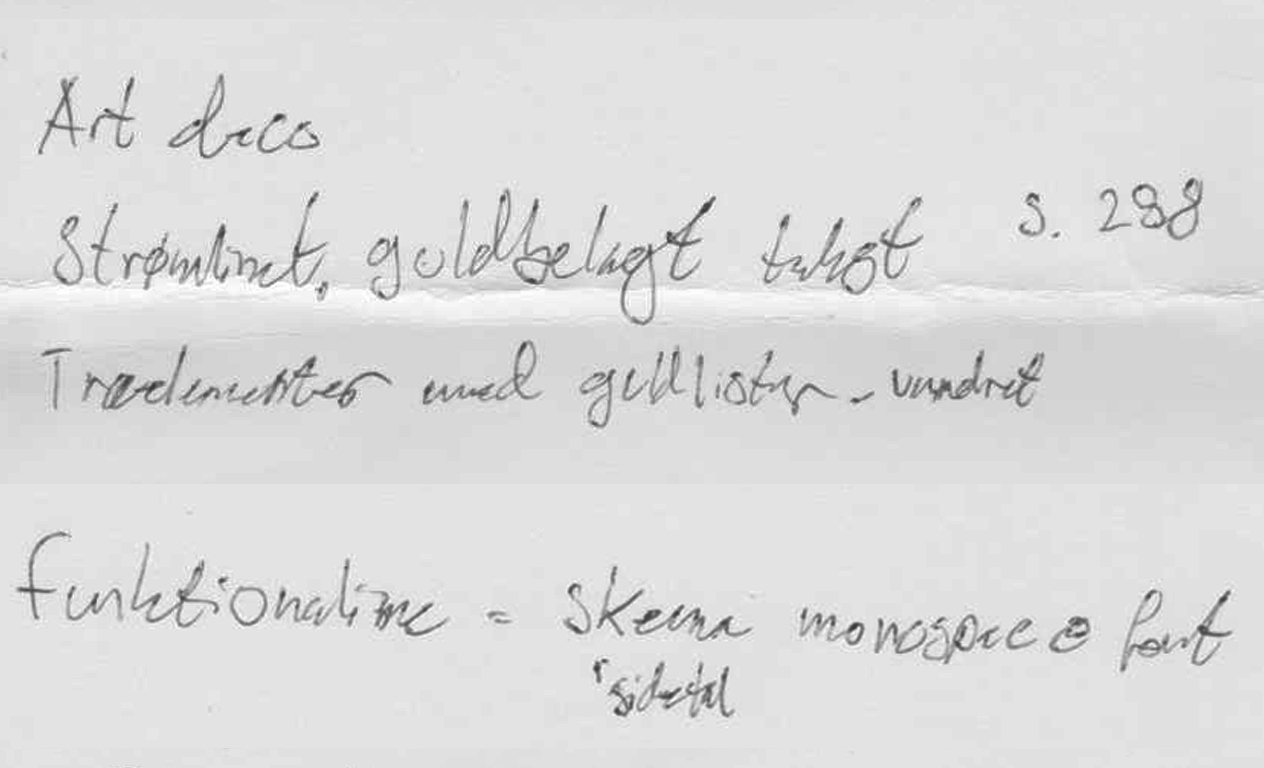 Art deco
Strømlinet, guldbelagt tekst s. 288
Træelementer med guldlister - vandret
Funktionalisme = Skema monospace font
sidetal